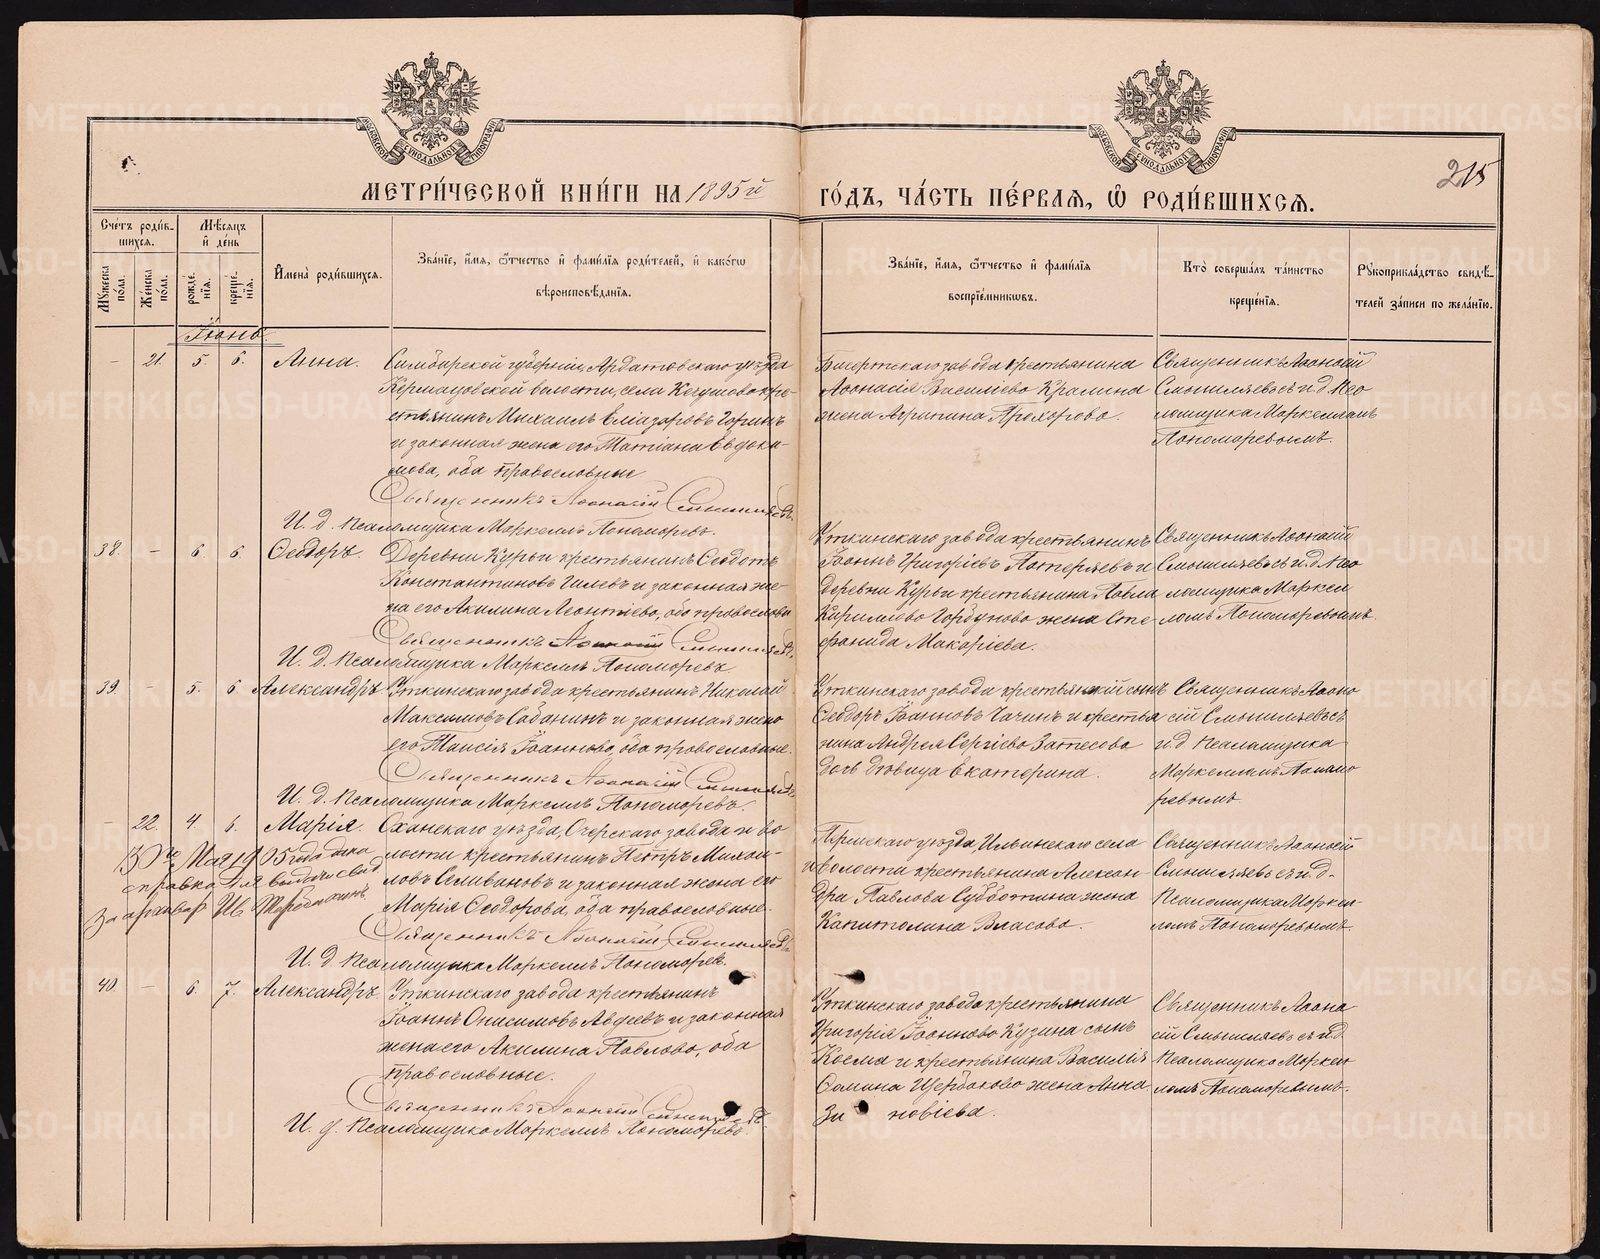 МЕТРИ́ЧЕСКОЙ КНИ́ГИ НА 1895 й ГО́ДЪ, ЧА́СТЬ ПЕ́РВАЯ, Ѡ РОДИ́ВШИХСЯ.
215
МОСКОВСКОЙ СѴНОДАЛЬНОЙ ТИПОГРАФІИ
МОСКОВСКОЙ СѴНОДАЛЬНОЙ ТИПОГРАФІИ
Сче́тъ роди́вшихся.
Му́жеска по́ла.
Же́нска по́ла.
Мѣ́сяцъ и҆ де́нь
рожде́нїя.
креще́нїя.
И҆мена̀ роди́вшихся.
Зва́нїе, и҆́мя, ѻ҆́тчество и҆ фами́лїя роди́телей, и҆ како́гѡ
вѣроисповѣ́данїя.
Зва́нїе, и҆́мя, ѻ҆́тчество и҆ фами́лїя
воспрїе́мниковъ.
Кто̀ соверша́лъ та́инство
креще́нїя.
Рꙋкоприкла́дство свидѣ́-
телей за́писи по жела́нїю.
Іюнь.
– 21. 5. 6. Анна.
Симбирской губерніи, Ардатовскаго уѣзда
волости, села крe-
стьянинъ Михаилъ Еліазаровъ Горинъ
и законная жена его Татіана Евдоки-
мова, оба православные
Священникъ Аѳанасій Смышляевъ.
И. д. Псаломщика Маркеллъ Пономаревъ.
Бисертскаго завода крестьянина
Аѳанасія Василіева Кралина
жена Агрипина Прохорова.
Священникъ Аѳанасій
Смышляевъ съ и. д. Пса
ломщика Маркелломъ
Пономаревымъ.
38. – 6. 6. Ѳеодоръ.
Деревни Курьи крестьянинъ Ѳеодотъ
Константиновъ Гилевъ и законная же-
на его Акилина Леонтіева, оба православны
Священникъ Аѳанасій Смышляевъ.
И. Д. Псаломщика Маркеллъ Пономаревъ
Уткинскаго завода крестьянинъ
Іоаннъ Григоріевъ Потеряевъ и
деревни Курьи крестьянина Павла
Кириллова Горбунова жена Сте
фанида Макаріева.
Священникъ Аѳанасій
Смышляевъ съ и. д. Пса
ломщика Маркел
ломъ Пономаревымъ.
39. – 5. 6. Александръ
Уткинскаго завода крестьянинъ Николай
Максимовъ Сабанинъ и законная жена
его Таисія Іоаннова, оба православные.
Священникъ Аѳанасій Смышляевъ
И. Д. Псаломщика Маркеллъ Пономаревъ.
Уткинскаго завода крестьянскій сынъ
Ѳеодоръ Іоанновъ Чачинъ и крестья
нина Андрея Сергіева Затесова
дочь дѣвица Екатерина.
Священникъ Аѳана
сій Смышляевъ съ
и. д Псаломщика
Маркелломъ Понама
ревымъ
– 22. 4. 6. Марія.
Оханскаго уѣзда, Очерскаго завода и во
лости крестьянинъ Петръ Михаи-
ловъ Селивановъ и законная жена его
Марія Ѳеодорова, оба православные.
Священникъ Аѳанасій Смышляевъ
И. Д. Псаломщика Маркеллъ Пономаревъ.
13 го Мая 1905 года дана
справка для выдачи свид
За архивар
Пермскаго уѣзда, Ильинскаго села
и волости крестьянина Алексан-
дра Павлова Субботина жена
Капитолина Власова.
Священникъ Аѳанасій
Смышляевъ съ и. д-
Псаломщика Маркел-
ломъ Пономаревымъ.
40. – 6. 7. Александръ
Уткинскаго завода крестьянинъ
Іоаннъ Онисимовъ Авдеевъ и законная
жена его Акилина Павлова, оба
православные.
Священникъ Аѳанасій Смышляевъ.
И. д. Псаломщика Маркеллъ Пономаревъ.
Уткинскаго завода крестьянина
Григорія Іоаннова Кузина сынъ
Косма и крестьянина Василія
Фомина Щербакова жена Анна
Зиновіева.
Священникъ Аѳана
сій Смышляевъ съ и. д.
Псаломщика Маркел
ломъ Пономаревымъ.
METRIKI.GASO-URAL.RU